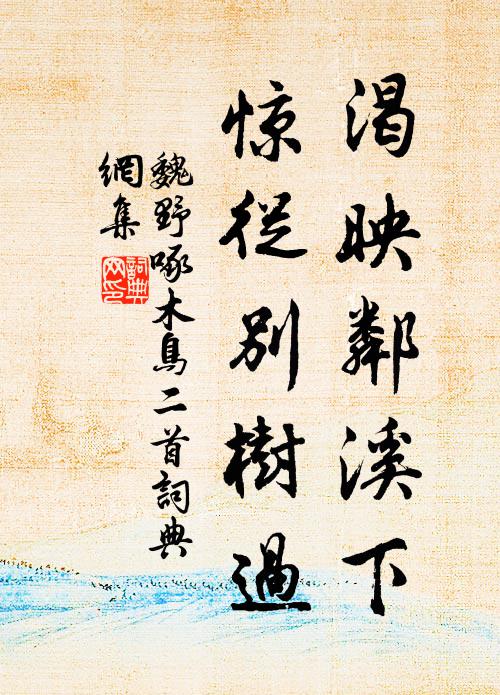 渴映鄰溪下
惊從別樹過
魏野啄木鳥二首詞典
網集
詞典
网印